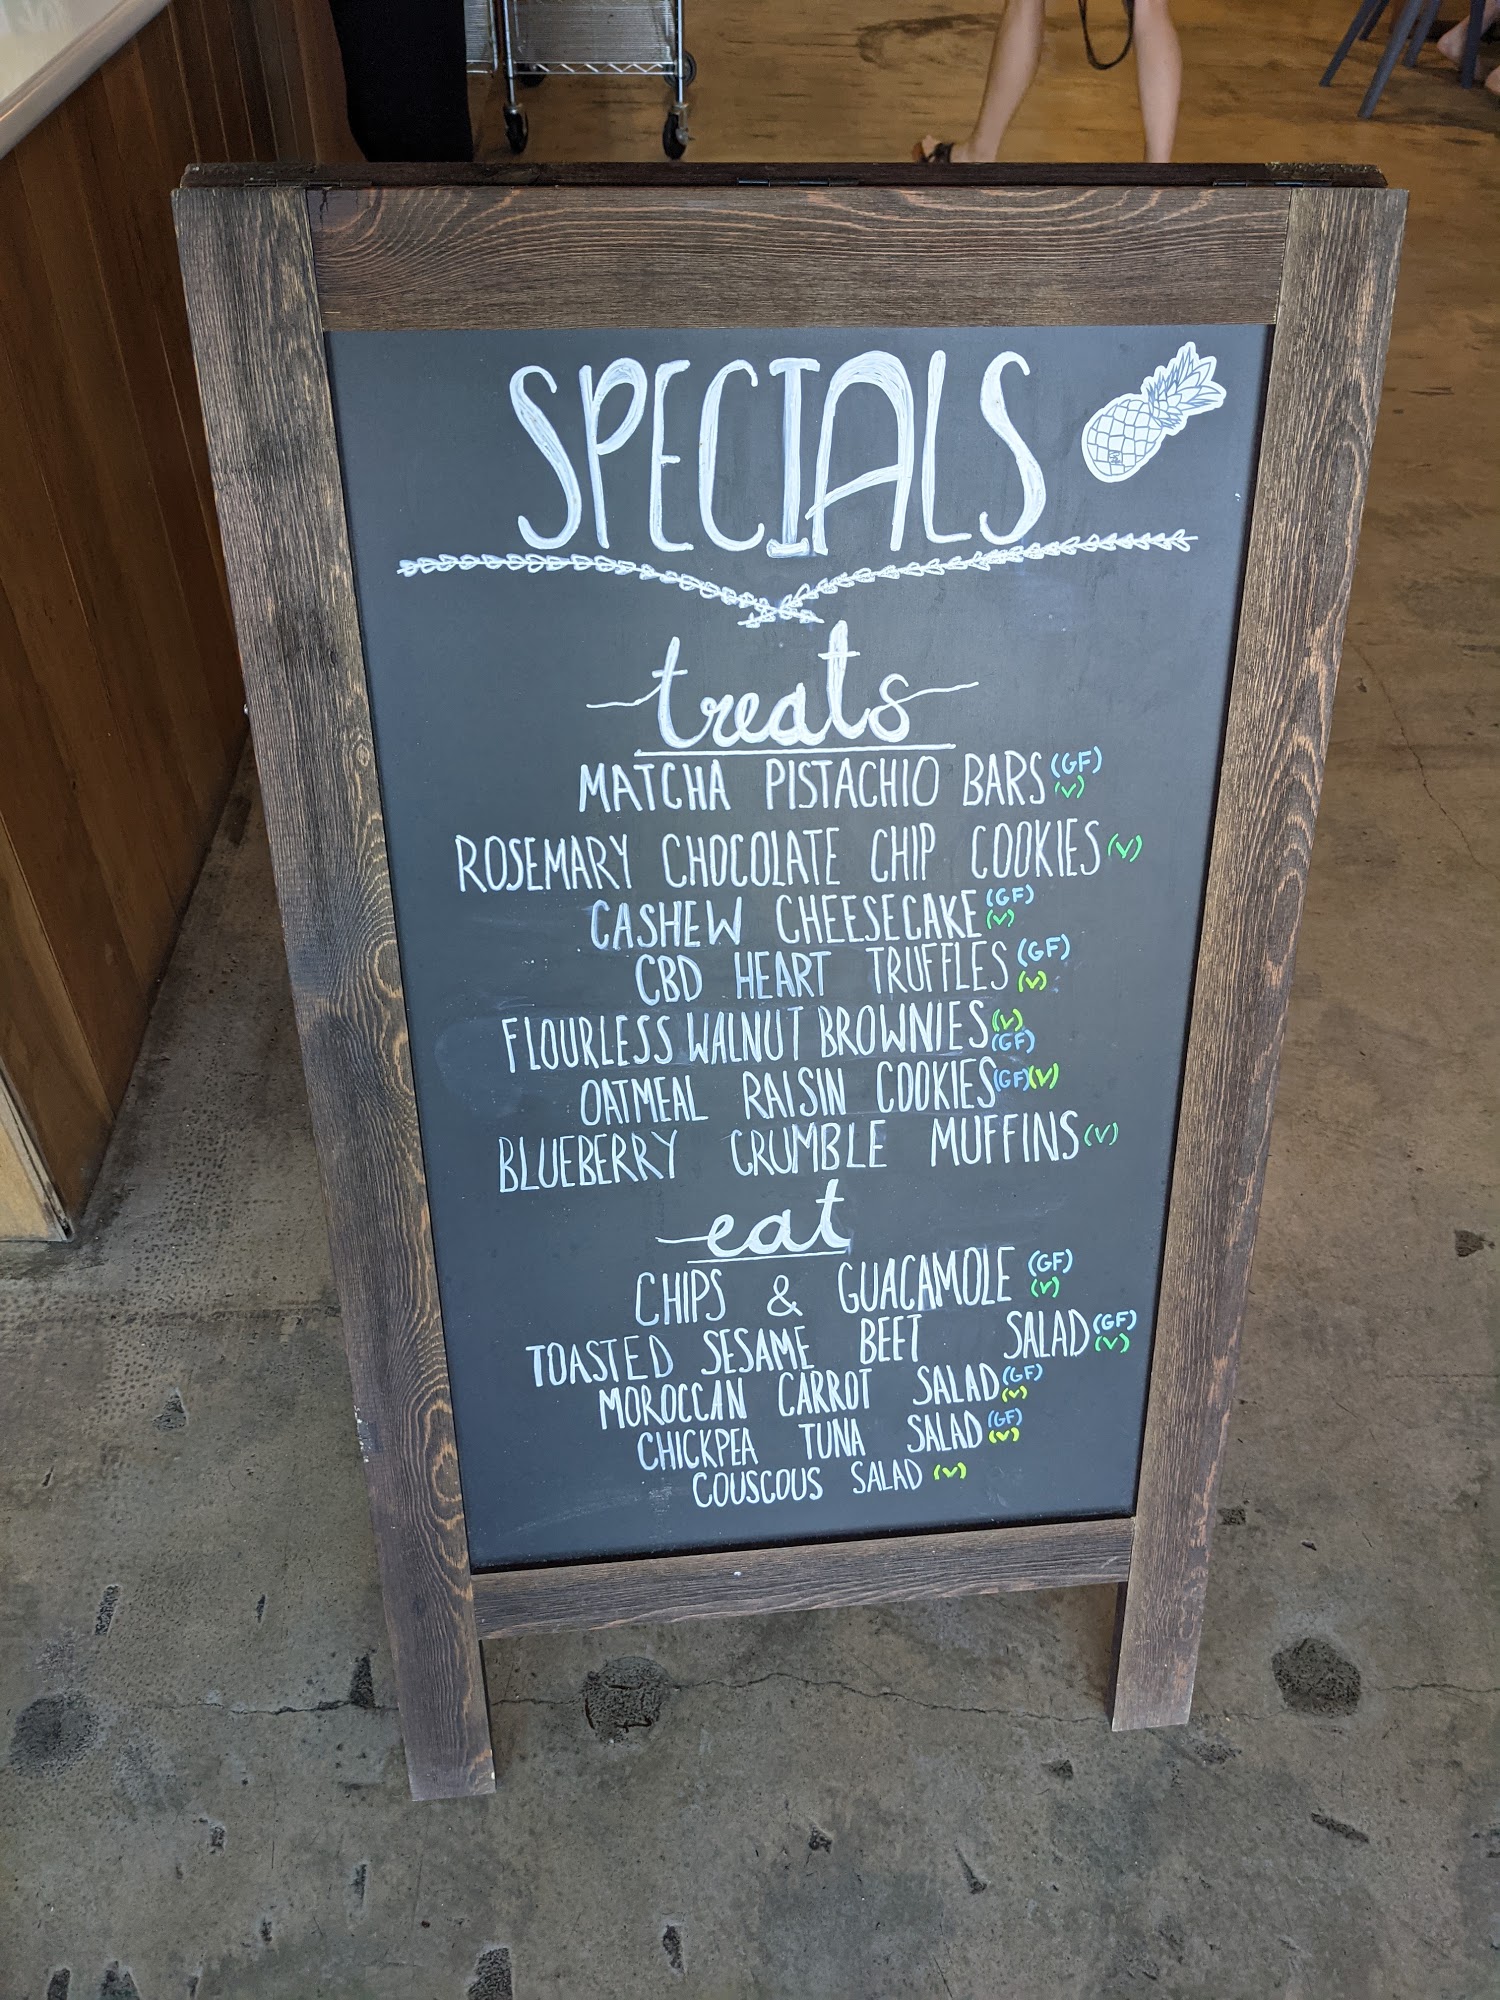 SPECIALS
treats
MATCHA PISTACHIO BARS (GF) (V)
ROSEMARY CHOCOLATE CHIP COOKIES (V)
CASHEW CHEESECAKE (GF) (V)
CBD HEART TRUFFLES (GF) (V)
FLOURLESS WALNUT BROWNIES (V) (GF)
OATMEAL RAISIN COOKIES (GF) (V)
BLUEBERRY CRUMBLE MUFFINS (V)
eat
CHIPS & GUACAMOLE (GF) (V)
TOASTED SESAME BEET SALAD (GF) (V)
MOROCCAN CARROT SALAD (GF) (V)
CHICKPEA TUNA SALAD (GF) (V)
COUSCOUS SALAD (V)